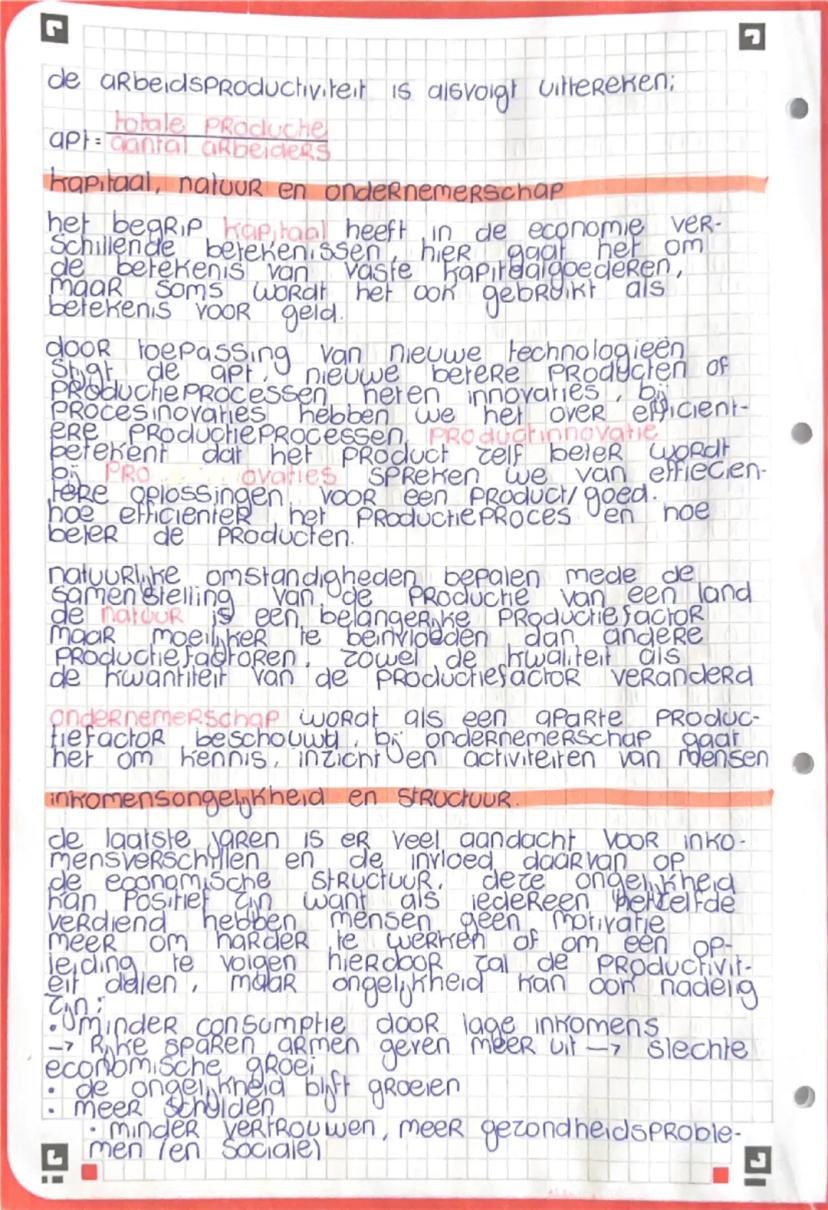 de arbeidsproductiviteit is alsvolgt uittereken;
apt = totale productie
aantal arbeiders
kapitaal, natuur en ondernemerschap
het begrip kapitaal heeft in de economie ver-
schillende betekenissen, hier gaat het om
de betekenis van vaste kapitaalgoederen,
maar soms wordt het ook gebruikt als
betekenis voor geld.
door toepassing van nieuwe technologieën
stijgt de apt, nieuwe betere producten of
productieprocessen heten innovaties, bij
procesinovaties hebben we het over efficient-
ere productieprocessen, productinnovatie
betekent dat het product zelf beter wordt
bij pro ovaties spreken we van effiecien-
tere oplossingen voor een product/goed.
hoe efficienter het productieproces en hoe
beter de producten.
natuurlijke omstandigheden bepalen mede de
samenstelling van de productie van een land
de natuur is een belangerijke productiefactor
maar moeilijker te beinvloeden dan andere
productiefactoren, zowel de kwaliteit als
de kwantiteit van de productiefactor veranderd
ondernemerschap wordt als een aparte produc-
tiefactor beschouwd, bij ondernemerschap gaat
het om kennis, inzicht en activiteiten van mensen
inkomensongelijkheid en structuur.
de laatste jaren is er veel aandacht voor inko-
mensverschillen en de invloed daarvan op
de economische structuur. deze ongelijkheid
kan positief zijn want als iedereen hetzelfde
verdiend hebben mensen geen motivatie
meer om harder te werken of om een op-
leiding te volgen hierdoor zal de productivit-
eit dalen, maar ongelijkheid kan ook nadelig
zijn:
• minder consumptie door lage inkomens
→ rijke sparen armen geven meer uit → slechte
economische groei
• de ongelijkheid blijft groeien
• meer schulden
• minder vertrouwen, meer gezondheidsproble-
men (en sociale)